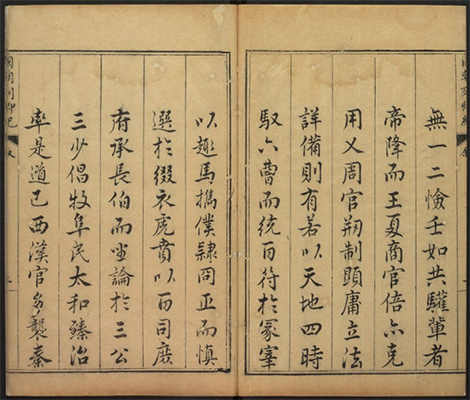 無一二憸壬如共驩輩者
帝降而王夏商官倍亦克
用乂周官剏制顯庸立法
詳備則有若以天地四時
馭六曹而統百符於冢宰
以趣馬攜僕隸冏正而慎
選於綴衣虎賁以百司庶
府承長伯而坐論於三公
三少倡牧阜民太和臻治
率是道已西漢官多襲秦